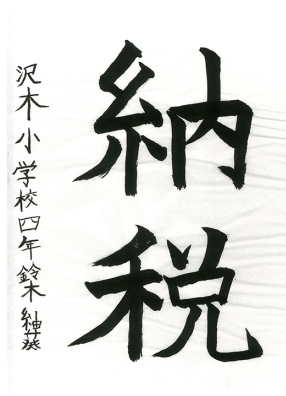 納税
沢木小学校四年鈴木紬葵